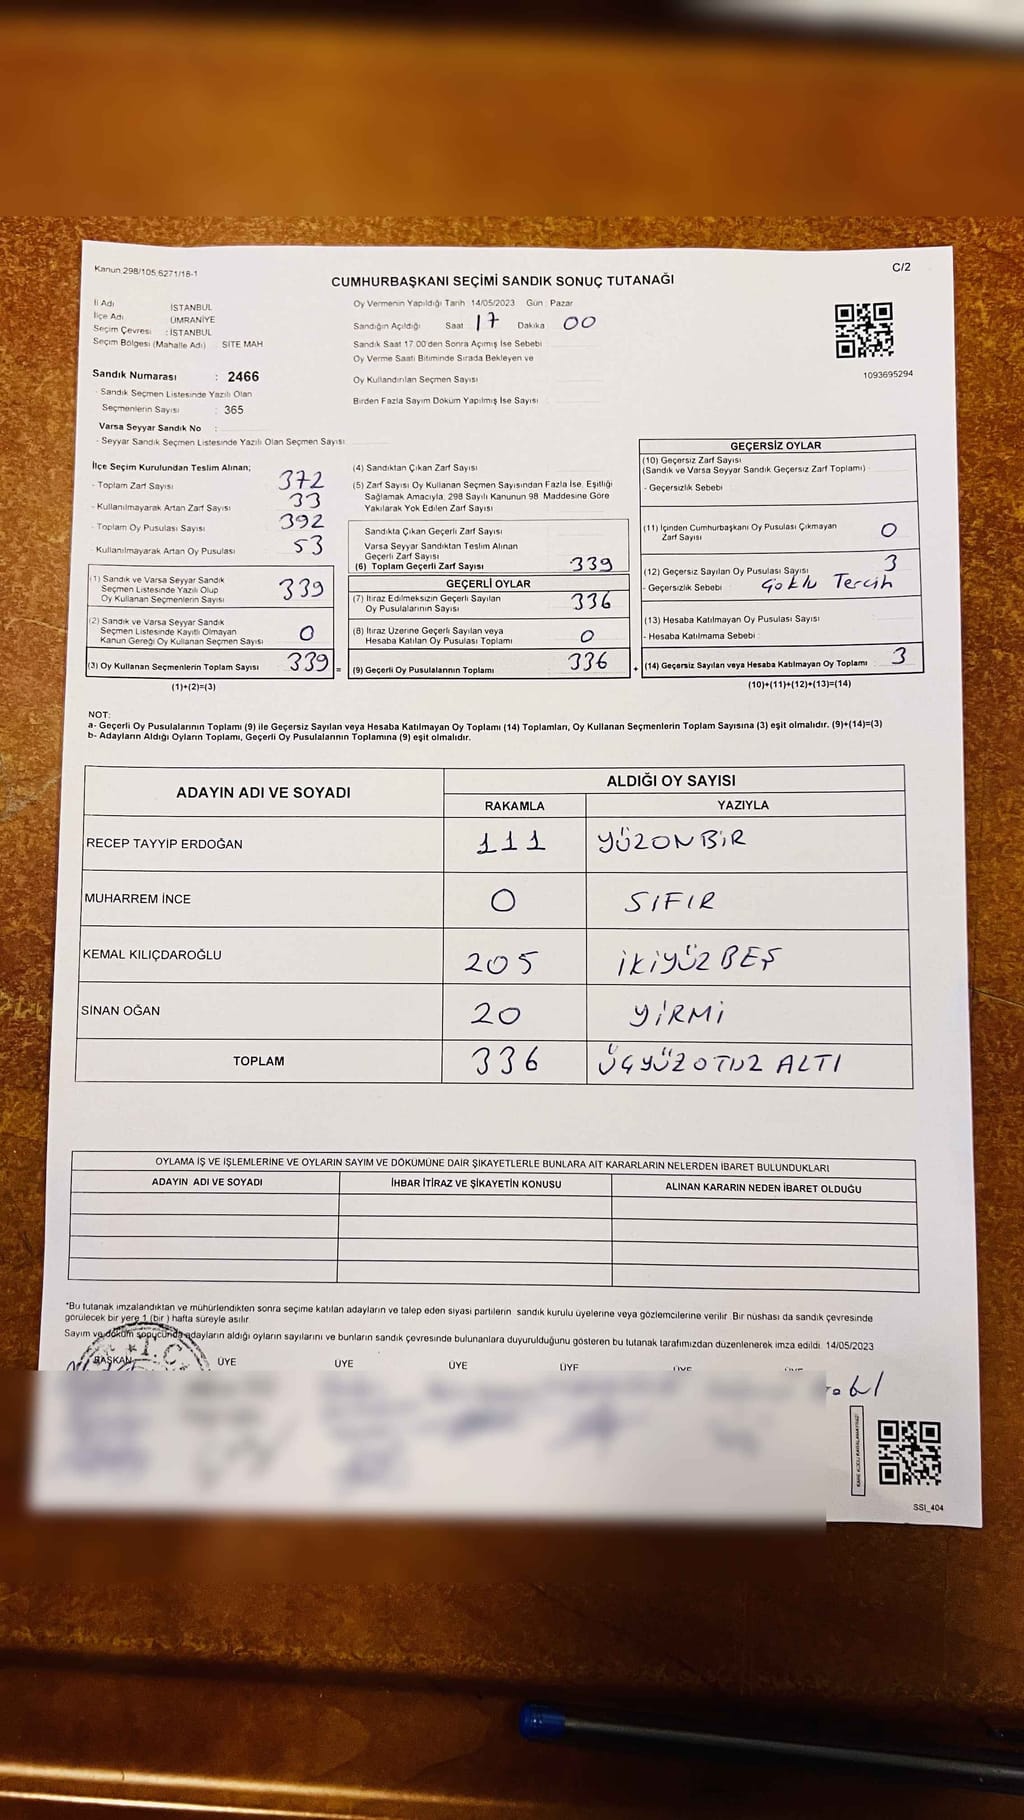 Kanun 298/105,6271/18-1
C/2
CUMHURBAŞKANI SEÇİMİ SANDIK SONUÇ TUTANAĞI
İl Adı İSTANBUL
İlçe Adı ÜMRANİYE
Seçim Çevresi : İSTANBUL
Seçim Bölgesi (Mahalle Adı) SİTE MAH
Sandık Numarası : 2466
- Sandık Seçmen Listesinde Yazılı Olan
Seçmenlerin Sayısı : 365
Varsa Seyyar Sandık No :
- Seyyar Sandık Seçmen Listesinde Yazılı Olan Seçmen Sayısı
Oy Vermenin Yapıldığı Tarih 14/05/2023 Gün : Pazar
Sandığın Açıldığı Saat 17 Dakika 00
Sandık Saat 17.00'den Sonra Açımış İse Sebebi
Oy Verme Saati Bitiminde Sırada Bekleyen ve
Oy Kullandırılan Seçmen Sayısı
Birden Fazla Sayım Döküm Yapılmış İse Sayısı
1093695294
İlçe Seçim Kurulundan Teslim Alınan;
- Toplam Zarf Sayısı 372
- Kullanılmayarak Artan Zarf Sayısı 33
- Toplam Oy Pusulası Sayısı 392
- Kullanılmayarak Artan Oy Pusulası 53
(1) Sandık ve Varsa Seyyar Sandık
Seçmen Listesinde Yazılı Olup
Oy Kullanan Seçmenlerin Sayısı 339
(2) Sandık ve Varsa Seyyar Sandık
Seçmen Listesinde Kayıtlı Olmayan
Kanun Gereği Oy Kullanan Seçmen Sayısı 0
(3) Oy Kullanan Seçmenlerin Toplam Sayısı 339 =
(1)+(2)=(3)
(4) Sandıktan Çıkan Zarf Sayısı
(5) Zarf Sayısı Oy Kullanan Seçmen Sayısından Fazla İse, Eşitliği
Sağlamak Amacıyla, 298 Sayılı Kanunun 98. Maddesine Göre
Yakılarak Yok Edilen Zarf Sayısı
Sandıkta Çıkan Geçerli Zarf Sayısı
Varsa Seyyar Sandıktan Teslim Alınan
Geçerli Zarf Sayısı
(6) Toplam Geçerli Zarf Sayısı 339
GEÇERLİ OYLAR
(7) İtiraz Edilmeksizin Geçerli Sayılan
Oy Pusulalarının Sayısı 336
(8) İtiraz Üzerine Geçerli Sayılan veya
Hesaba Katılan Oy Pusulası Toplamı 0
(9) Geçerli Oy Pusulalarının Toplamı 336 +
GEÇERSİZ OYLAR
(10) Geçersiz Zarf Sayısı
(Sandık ve Varsa Seyyar Sandık Geçersiz Zarf Toplamı)
- Geçersizlik Sebebi
(11) İçinden Cumhurbaşkanı Oy Pusulası Çıkmayan
Zarf Sayısı 0
(12) Geçersiz Sayılan Oy Pusulası Sayısı 3
- Geçersizlik Sebebi Çoklu Tercih
(13) Hesaba Katılmayan Oy Pusulası Sayısı
- Hesaba Katılmama Sebebi
(14) Geçersiz Sayılan veya Hesaba Katılmayan Oy Toplamı 3
(10)+(11)+(12)+(13)=(14)
NOT:
a- Geçerli Oy Pusulalarının Toplamı (9) ile Geçersiz Sayılan veya Hesaba Katılmayan Oy Toplamı (14) Toplamları, Oy Kullanan Seçmenlerin Toplam Sayısına (3) eşit olmalıdır. (9)+(14)=(3)
b- Adayların Aldığı Oyların Toplamı, Geçerli Oy Pusulalarının Toplamına (9) eşit olmalıdır.
ADAYIN ADI VE SOYADI ALDIĞI OY SAYISI
RAKAMLA YAZIYLA
RECEP TAYYİP ERDOĞAN 111 YÜZONBİR
MUHARREM İNCE 0 SIFIR
KEMAL KILIÇDAROĞLU 205 İKİYÜZBEŞ
SİNAN OĞAN 20 YİRMİ
TOPLAM 336 ÜÇYÜZOTUZ ALTI
OYLAMA İŞ VE İŞLEMLERİNE VE OYLARIN SAYIM VE DÖKÜMÜNE DAİR ŞİKAYETLERLE BUNLARA AİT KARARLARIN NELERDEN İBARET BULUNDUKLARI
ADAYIN ADI VE SOYADI İHBAR İTİRAZ VE ŞİKAYETİN KONUSU ALINAN KARARIN NEDEN İBARET OLDUĞU
*Bu tutanak imzalandıktan ve mühürlendikten sonra seçime katılan adayların ve talep eden siyasi partilerin sandık kurulu üyelerine veya gözlemcilerine verilir. Bir nüshası da sandık çevresinde
görülecek bir yere 1 (bir ) hafta süreyle asılır.
Sayım ve döküm sonucunda adayların aldığı oyların sayılarını ve bunların sandık çevresinde bulunanlara duyurulduğunu gösteren bu tutanak tarafımızdan düzenlenerek imza edildi. 14/05/2023
BAŞKAN ÜYE ÜYE ÜYE ÜYE ÜYE ÜYE
T.C.
SSI_404